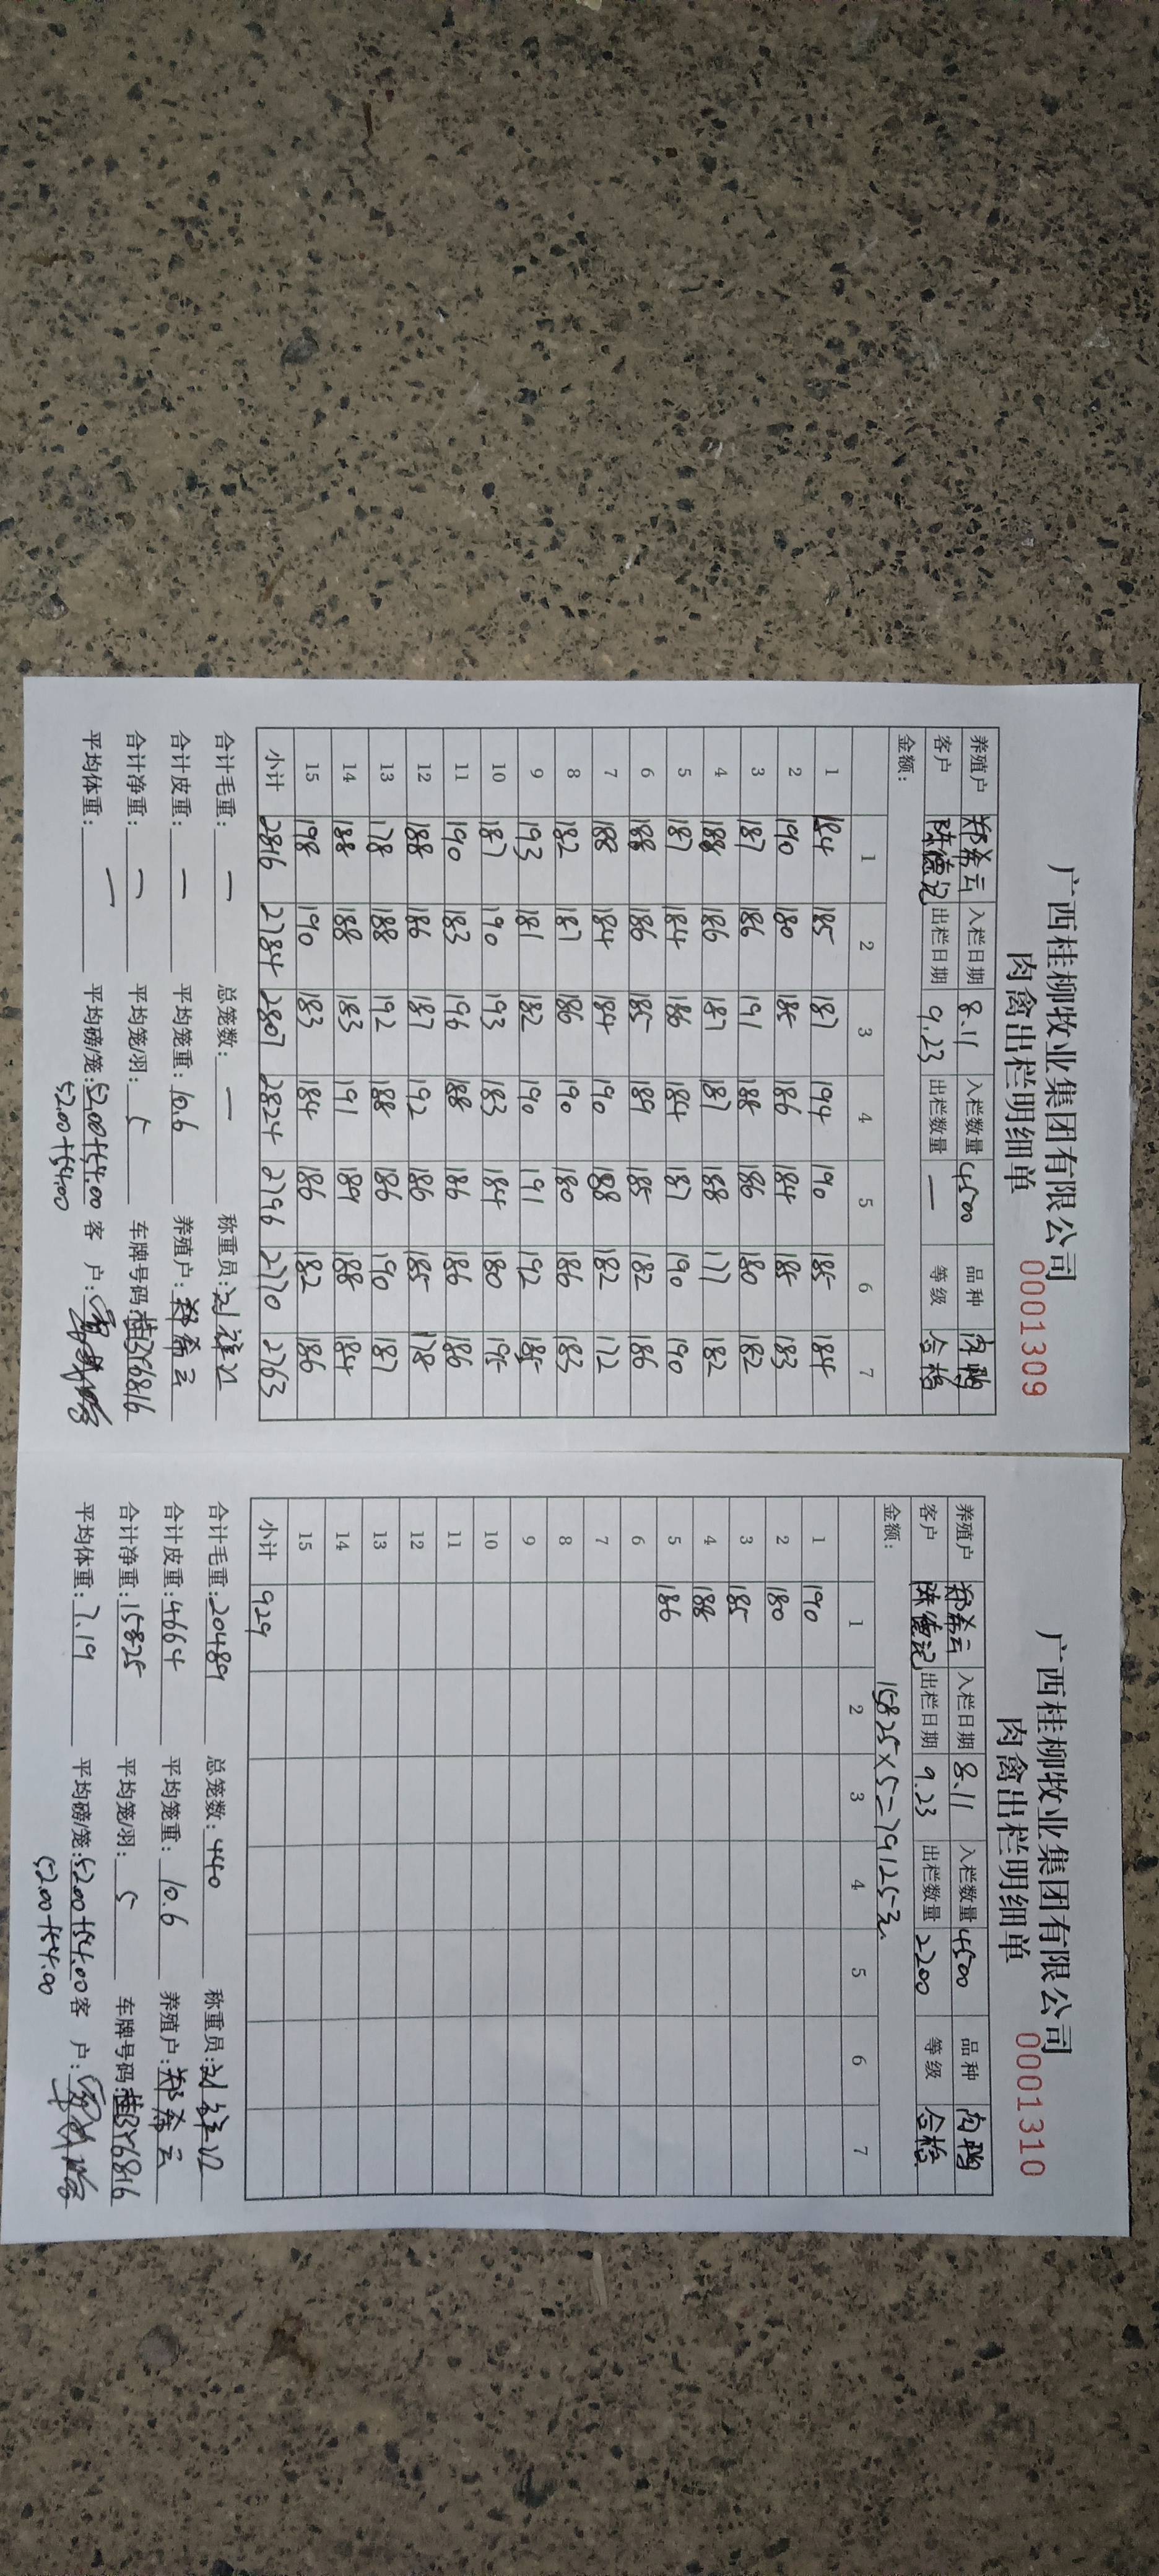 广西桂柳牧业集团有限公司
肉禽出栏明细单 0001309
养殖户 郑希云 入栏日期 8.11 入栏数量 4500 品种 肉鸭
客户 陈德记 出栏日期 9.23 出栏数量 — 等级 合格
金额:
1 2 3 4 5 6 7
1 184 185 187 194 190 185 184
2 190 180 185 186 184 185 183
3 187 186 191 188 186 180 182
4 188 186 187 187 188 177 182
5 187 184 186 184 187 190 190
6 188 186 185 189 185 182 186
7 188 184 184 190 188 182 172
8 182 187 186 190 180 186 183
9 193 181 182 190 191 192 185
10 187 190 193 183 184 180 195
11 190 183 196 188 186 186 186
12 188 186 187 192 186 185 178
13 178 188 192 188 186 190 187
14 188 188 183 191 189 188 184
15 198 190 183 184 186 182 186
小计 2816 2784 2807 2824 2796 2770 2763
合计毛重: — 总笼数: — 称重员:
合计皮重: — 平均笼重: 10.6 养殖户: 郑希云
合计净重: — 平均笼/羽: 5 车牌号码:
平均体重: — 平均磅/笼: 52.00+54.00 客 户:
52.00+54.00
广西桂柳牧业集团有限公司
肉禽出栏明细单 0001310
养殖户 郑希云 入栏日期 8.11 入栏数量 4500 品种 肉鸭
客户 陈德记 出栏日期 9.23 出栏数量 2200 等级 合格
金额: 15825×5=79125元
1 2 3 4 5 6 7
1 190
2 180
3 185
4 188
5 186
6
7
8
9
10
11
12
13
14
15
小计 929
合计毛重: 20489 总笼数: 440 称重员:
合计皮重: 4664 平均笼重: 10.6 养殖户: 郑希云
合计净重: 15825 平均笼/羽: 5 车牌号码:
平均体重: 7.19 平均磅/笼: 52.00+54.00 客 户:
52.00+54.00